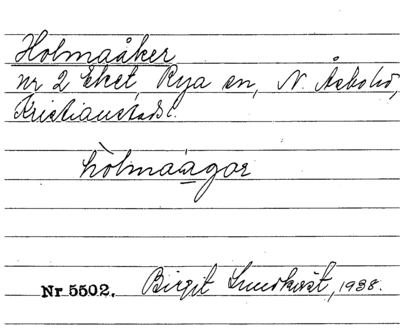 Holmaåker
nr 2 Eket, Rya sn, N. Åsbohd,
Kristianstads l.
hòlmaágar
Nr 5502. Birgit Lundkvist, 1938.